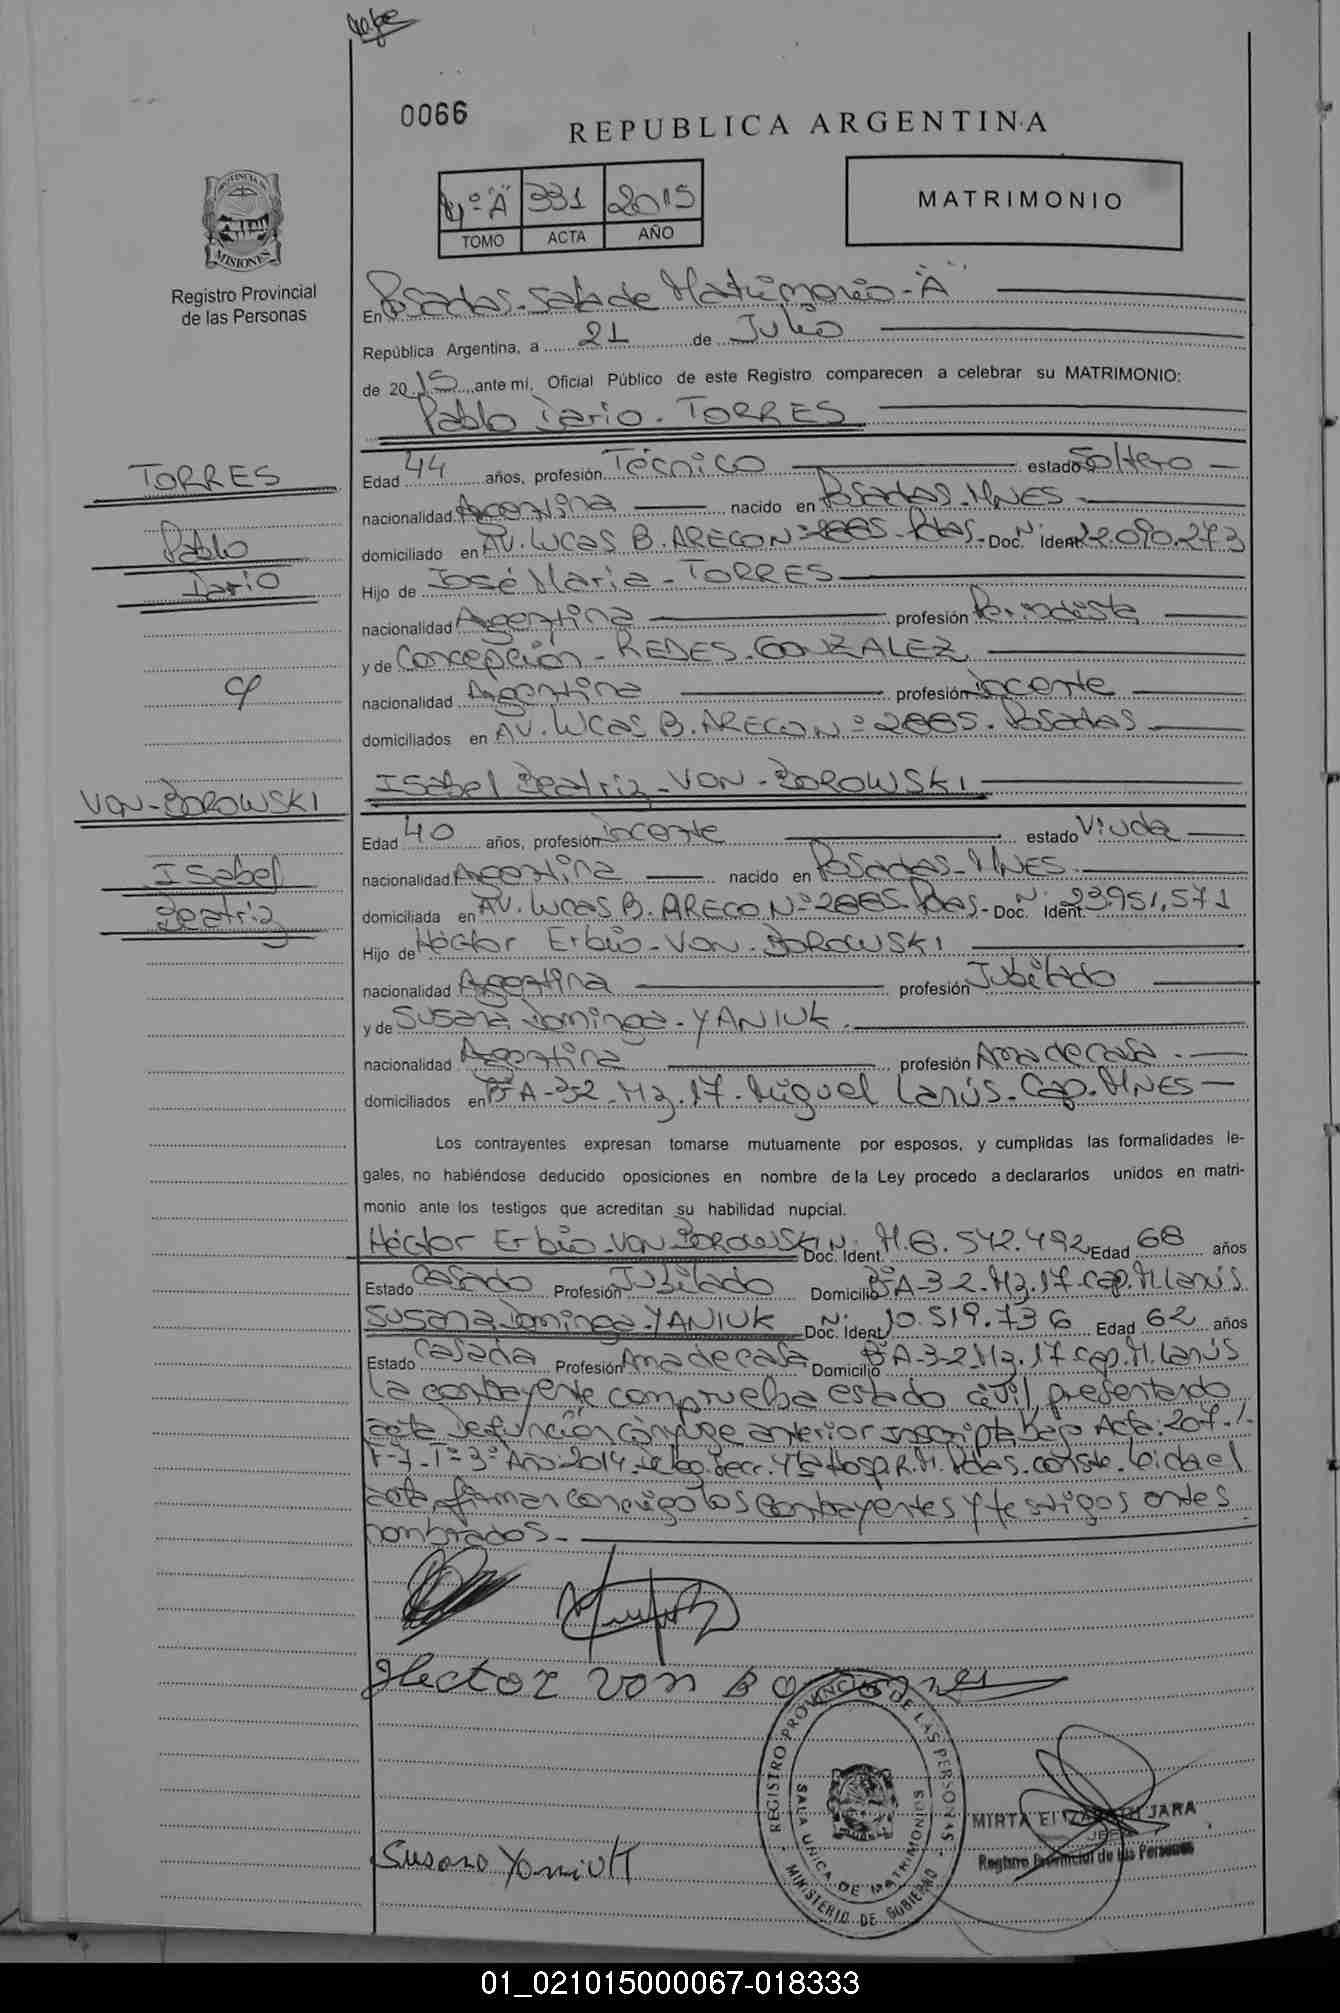 0066
REPUBLICA ARGENTINA
4º "A" 331 2015
TOMO ACTA AÑO
MATRIMONIO
PROVINCIA DE MISIONES
Registro Provincial
de las Personas
En Posadas - Sala de Matrimonio - "A"
República Argentina, a 21 de Julio
de 2015, ante mi, Oficial Público de este Registro comparecen a celebrar su MATRIMONIO:
Pablo Dario - TORRES
TORRES
Pablo
Dario
Edad 44 años, profesión Técnico estado Soltero
nacionalidad Argentina nacido en Posadas - MNES
domiciliado en AV. LUCAS B. ARECO Nº 2885 - Pdas. - Doc. Nº Ident. 22.090.273
Hijo de José Maria - TORRES
nacionalidad Argentina profesión Periodista
y de Concepción - REDES - GONZALEZ
nacionalidad Argentina profesión Docente
domiciliados en AV. LUCAS B. ARECO Nº 2885 - Posadas
c/
VON - BOROWSKI
Isabel
Beatriz
Isabel Beatriz - VON - BOROWSKI
Edad 40 años, profesión Docente estado Viuda
nacionalidad Argentina nacido en Posadas - MNES
domiciliada en AV. Lucas B. ARECO Nº 2885 - Pdas - Doc. Nº Ident. 23.951.571
Hijo de Héctor Erbio - VON - BOROWSKI
nacionalidad Argentina profesión Jubilado
y de Susana Dominga - YANIUK
nacionalidad Argentina profesión Ama de casa
domiciliados en Bº A-3-2 - Mz. 17 - Miguel Lanús - Cap. MNES
Los contrayentes expresan tomarse mutuamente por esposos, y cumplidas las formalidades le-
gales, no habiéndose deducido oposiciones en nombre de la Ley procedo a declararlos unidos en matri-
monio ante los testigos que acreditan su habilidad nupcial.
Héctor Erbio - VON BOROWSKI Nº Doc. Ident. M. 8.542.492 Edad 68 años
Estado Casado Profesión Jubilado Domicilio Bº A-3-2 - Mz. 17 - Cap. M. Lanús
Susana Dominga - YANIUK Nº Doc. Ident. 10.519.736 Edad 62 años
Estado Casada Profesión Ama de casa Domicilio Bº A-3-2 Mz. 17 - Cap. M. Lanús
La contrayente comprueba estado civil, presentando
acta defunción cónyuge anterior inscripta bajo Acta: 207 /
F-7 - Tº 3º Año 2014 - Deleg. Secc. 4ta Hosp. R. M. Pdas. Conste. Leida el
acta, firman conmigo los contrayentes y testigos antes
nombrados.
Hector Von
Susana Yaniuk
REGISTRO PROVINCIAL DE LAS PERSONAS
SALA UNICA DE MATRIMONIOS
MINISTERIO DE GOBIERNO
MIRTA ELIZABETH JARA
JEFE
Registro Provincial de las Personas
01_021015000067-018333